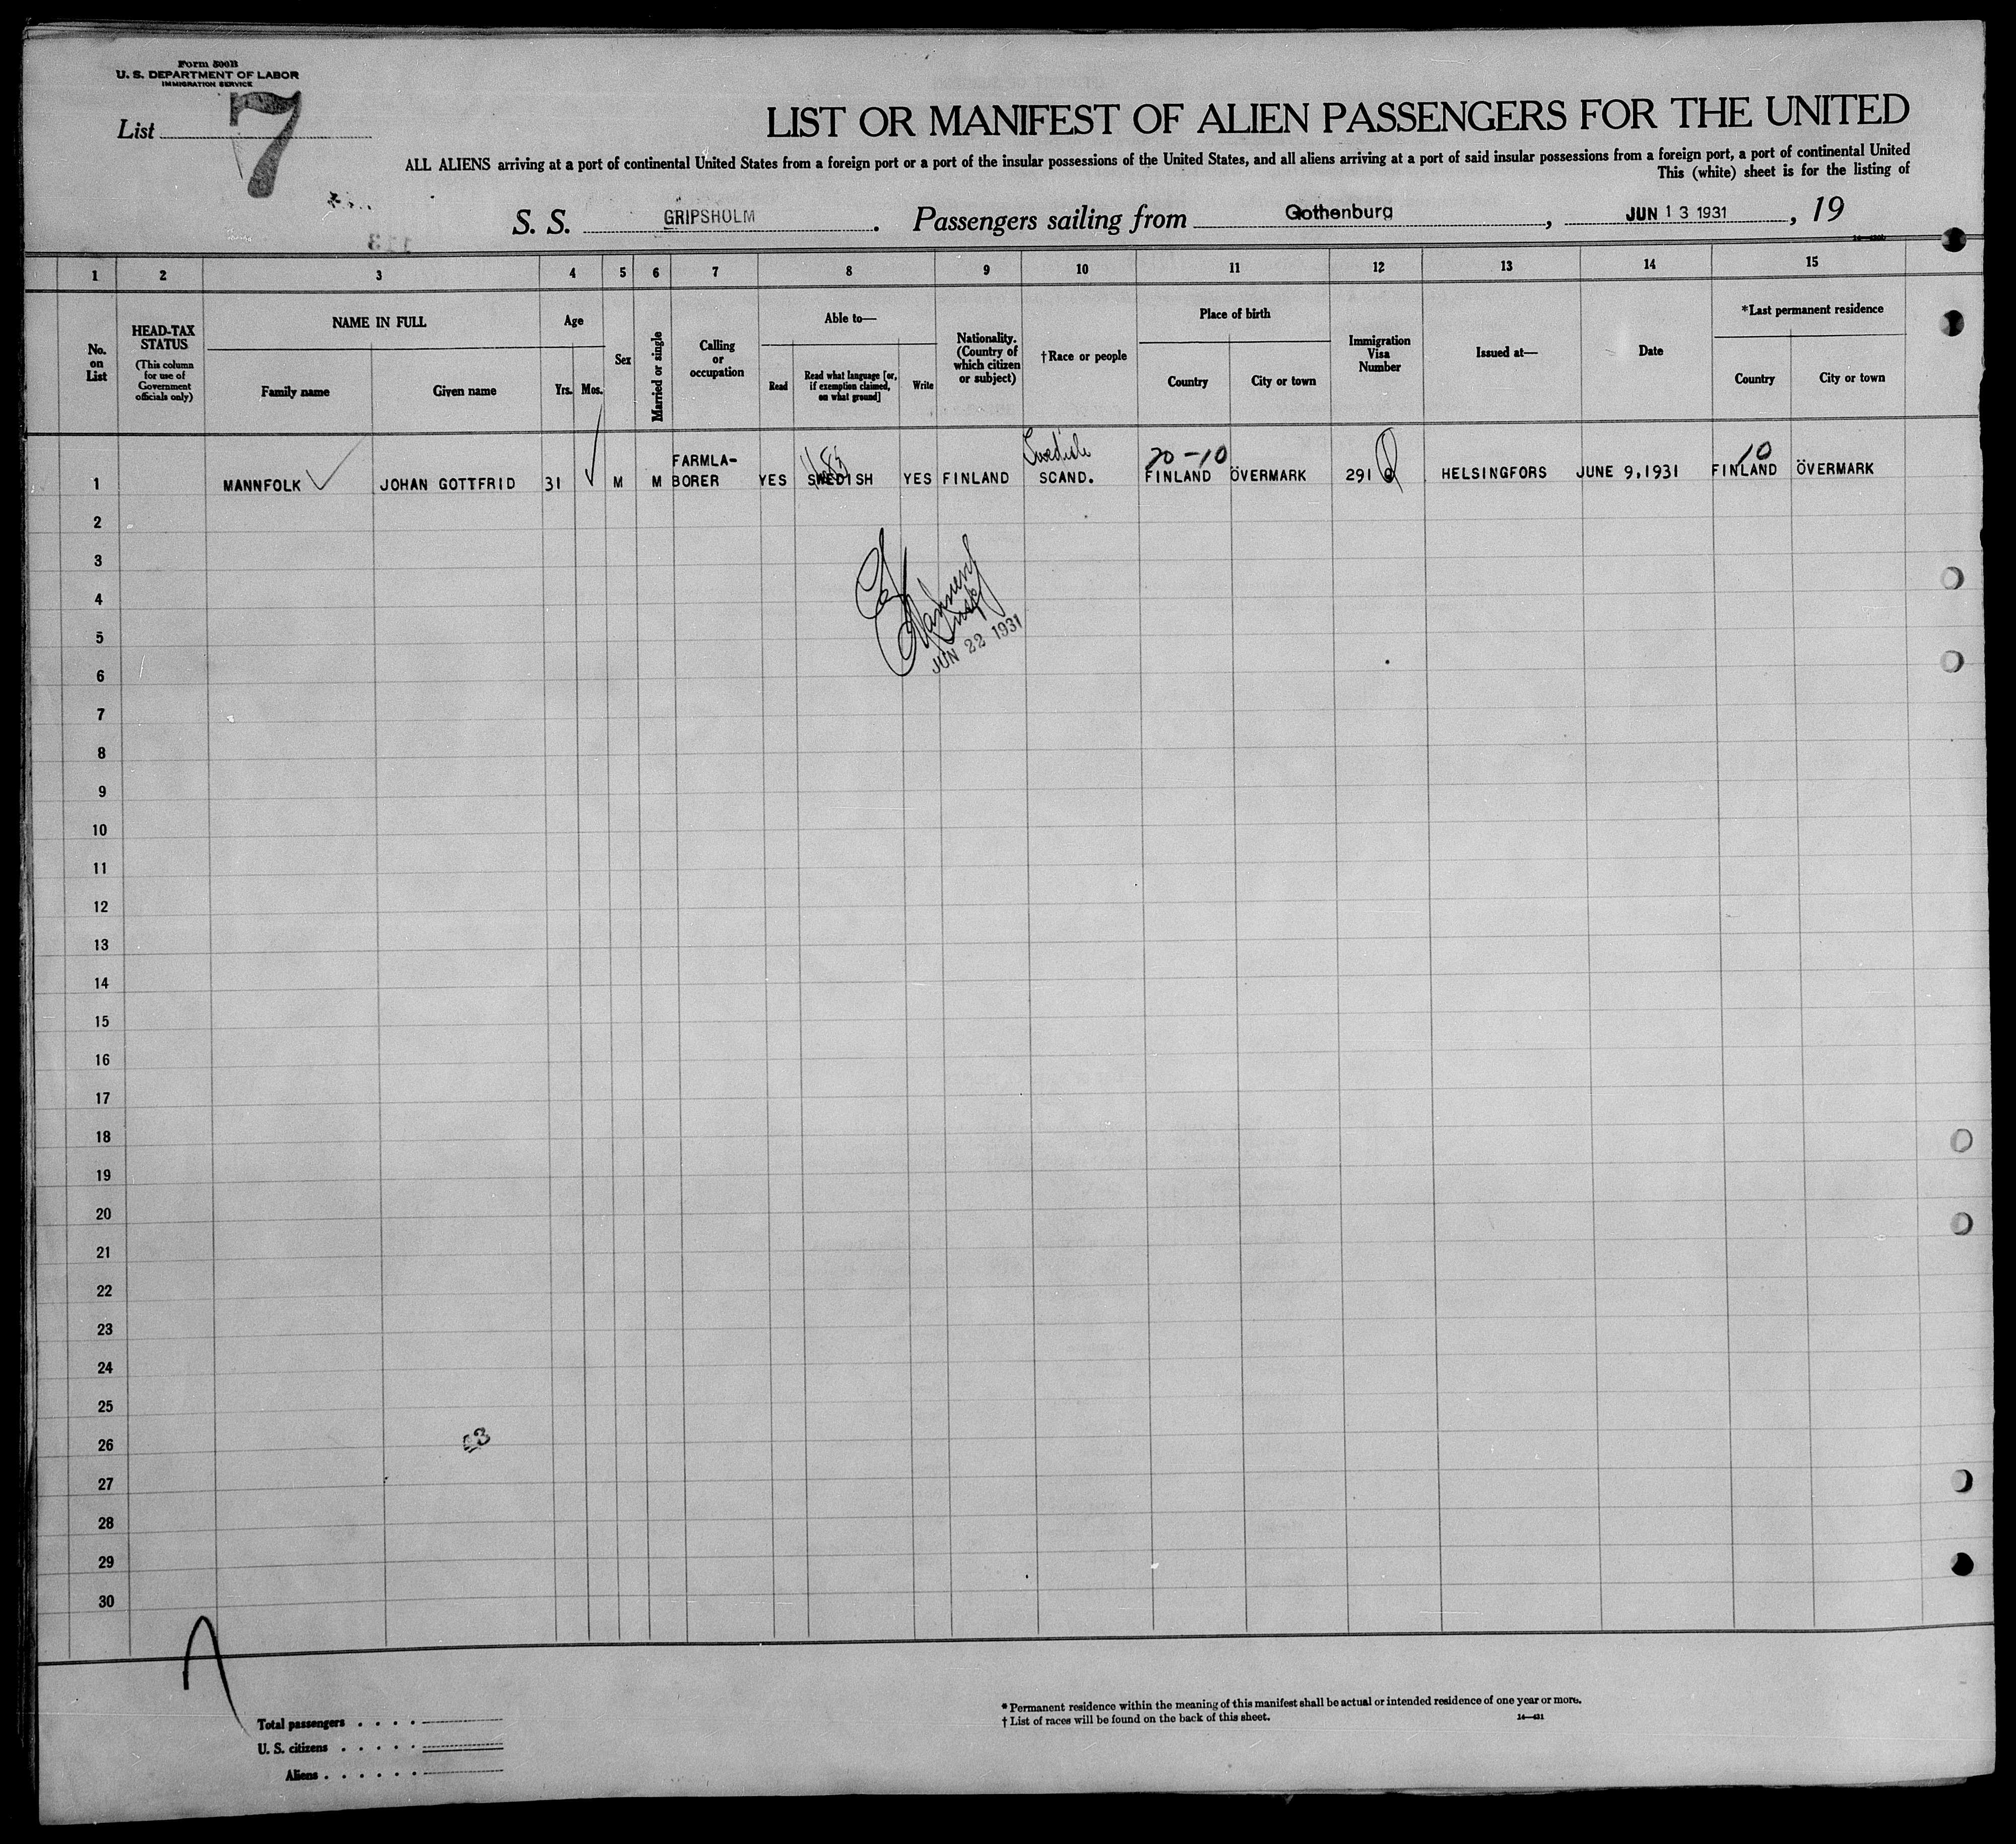 Form 500B
U. S. DEPARTMENT OF LABOR
IMMIGRATION SERVICE
List 7
LIST OR MANIFEST OF ALIEN PASSENGERS FOR THE UNITED
ALL ALIENS arriving at a port of continental United States from a foreign port or a port of the insular possessions of the United States, and all aliens arriving at a port of said insular possessions from a foreign port, a port of continental United
This (white) sheet is for the listing of
S. S. GRIPSHOLM. Passengers sailing from Gothenburg, JUN 13 1931, 19
1 2 3 4 5 6 7 8 9 10 11 12 13 14 15
No. on List
HEAD-TAX STATUS
(This column for use of Government officials only)
NAME IN FULL
Family name
Given name
Age
Yrs. Mos.
Sex
Married or single
Calling or occupation
Able to—
Read
Read what language [or, if exemption claimed, on what ground]
Write
Nationality. (Country of which citizen or subject)
†Race or people
Place of birth
Country
City or town
Immigration Visa Number
Issued at—
Date
*Last permanent residence
Country
City or town
Swedish 20-10 10
1 MANNFOLK JOHAN GOTTFRID 31 M M FARMLA-BORER YES SWEDISH YES FINLAND SCAND. FINLAND ÖVERMARK 291 HELSINGFORS JUNE 9,1931 FINLAND ÖVERMARK
2
3
4
5
JUN 22 1931
6
7
8
9
10
11
12
13
14
15
16
17
18
19
20
21
22
23
24
25
26
27
28
29
30
Total passengers
U. S. citizens
Aliens
* Permanent residence within the meaning of this manifest shall be actual or intended residence of one year or more.
† List of races will be found on the back of this sheet.
14—431